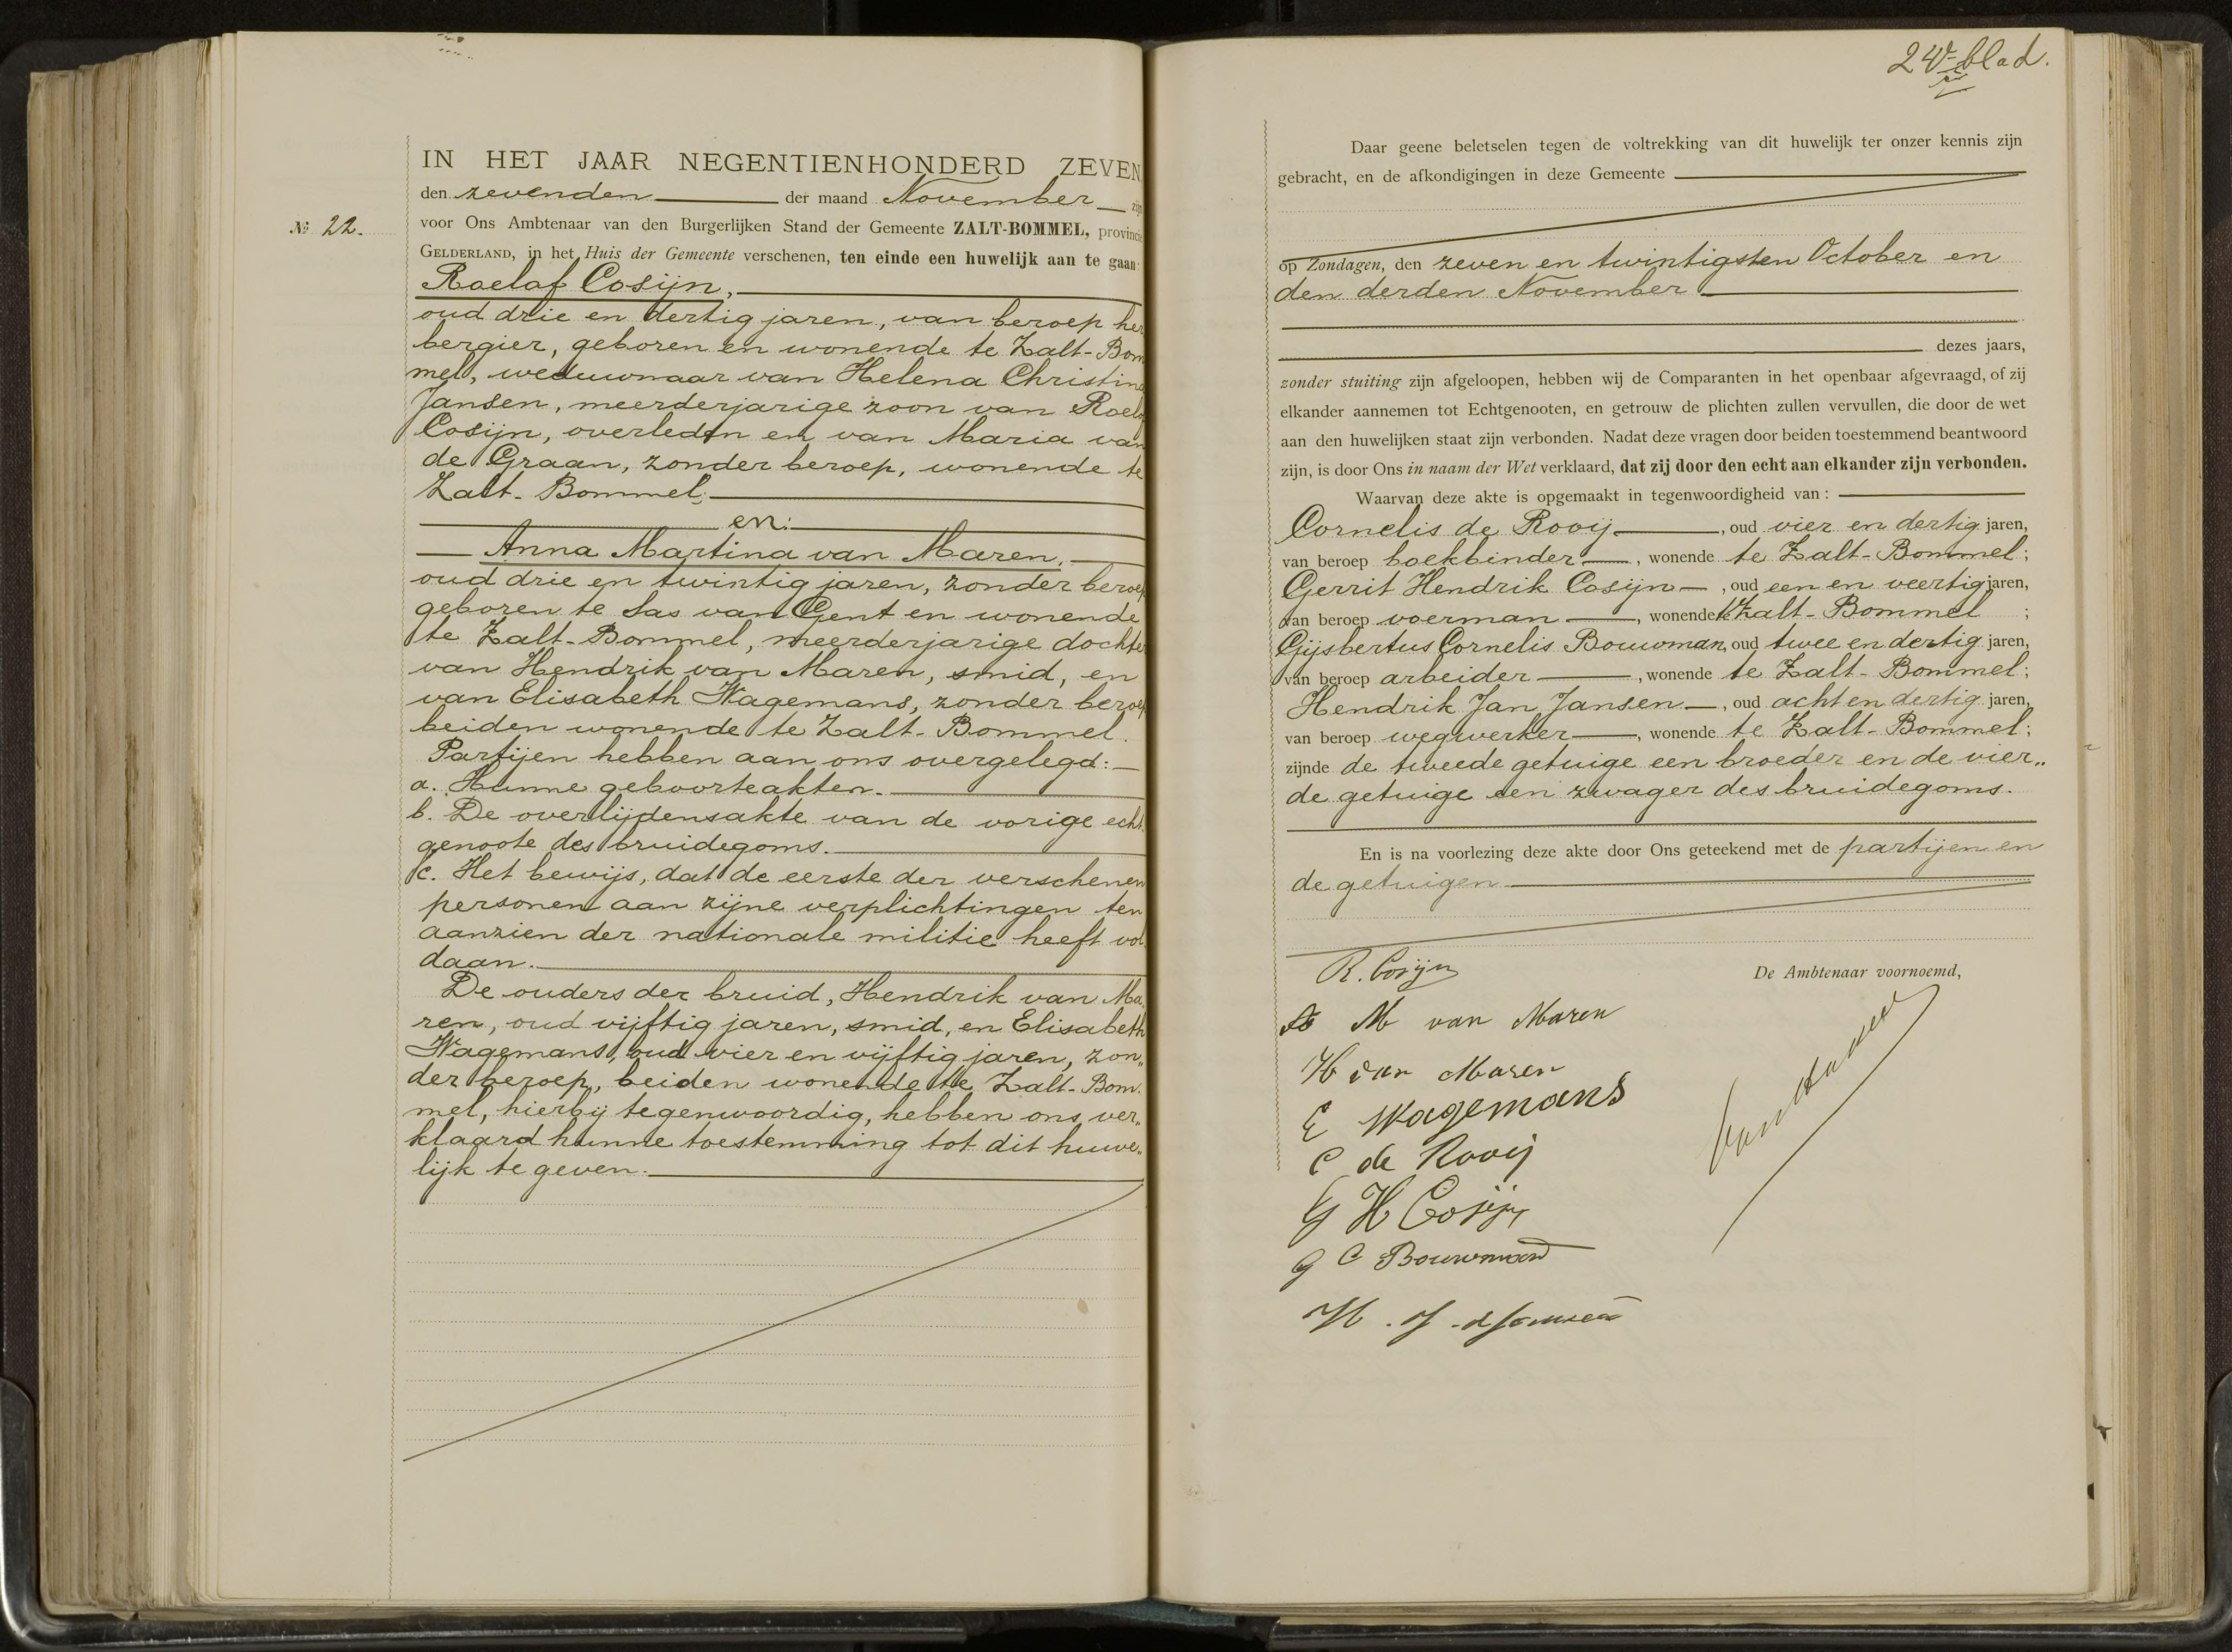 IN HET JAAR NEGENTIENHONDERD ZEVEN,
den zevenden der maand November zijn
№ 22.
voor Ons Ambtenaar van den Burgerlijken Stand der Gemeente ZALT-BOMMEL, provincie
GELDERLAND, in het Huis der Gemeente verschenen, ten einde een huwelijk aan te gaan:
Roelof Cosijn,
oud drie en dertig jaren, van beroep her
bergier, geboren en wonende te Zalt-Bom
mel, weduwnaar van Helena Christina
Jansen, meerderjarige zoon van Roelof
Cosijn, overleden en van Maria van
de Graan, zonder beroep, wonende te
Zalt-Bommel;
en:
Anna Martina van Maren,
oud drie en twintig jaren, zonder beroep
geboren te Sas van Gent en wonende
te Zalt-Bommel, meerderjarige dochter
van Hendrik van Maren, smid, en
van Elisabeth Wagemans, zonder beroep
beiden wonende te Zalt-Bommel.
Partijen hebben aan ons overgelegd:
a. Hunne geboorteakten.
b. De overlijdensakte van de vorige echt
genoote des bruidegoms.
c. Het bewijs, dat de eerste der verschenen
personen aan zijne verplichtingen ten
aanzien der nationale militie heeft vol
daan.
De ouders der bruid, Hendrik van Ma
ren, oud vijftig jaren, smid, en Elisabeth
Wagemans, oud vier en vijftig jaren, zon„
der beroep, beiden wonende te Zalt-Bom
mel, hierbij tegenwoordig, hebben ons ver„
klaard hunne toestemming tot dit huwe„
lijk te geven.
24e blad.
Daar geene beletselen tegen de voltrekking van dit huwelijk ter onzer kennis zijn
gebracht, en de afkondigingen in deze Gemeente
op Zondagen, den zeven en twintigsten October en
den derden November
dezes jaars,
zonder stuiting zijn afgeloopen, hebben wij de Comparanten in het openbaar afgevraagd, of zij
elkander aannemen tot Echtgenooten, en getrouw de plichten zullen vervullen, die door de wet
aan den huwelijken staat zijn verbonden. Nadat deze vragen door beiden toestemmend beantwoord
zijn, is door Ons in naam der Wet verklaard, dat zij door den echt aan elkander zijn verbonden.
Waarvan deze akte is opgemaakt in tegenwoordigheid van:
Cornelis de Rooij, oud vier en dertig jaren,
van beroep boekbinder, wonende te Zalt-Bommel;
Gerrit Hendrik Cosijn, oud een en veertig jaren,
van beroep voerman, wonende te Zalt-Bommel;
Gijsbertus Cornelis Bouwman, oud twee en dertig jaren,
van beroep arbeider, wonende te Zalt-Bommel;
Hendrik Jan Jansen, oud acht en dertig jaren,
van beroep wegwerker, wonende te Zalt-Bommel;
zijnde de tweede getuige een broeder en de vier„
de getuige een zwager des bruidegoms.
En is na voorlezing deze akte door Ons geteekend met de partijen en
de getuigen
R. Cosijn
De Ambtenaar voornoemd,
A M van Maren
H van Maren
E Wagemans
C de Rooij
G H Cosijn
G C Bouwman
H. J. Jansen